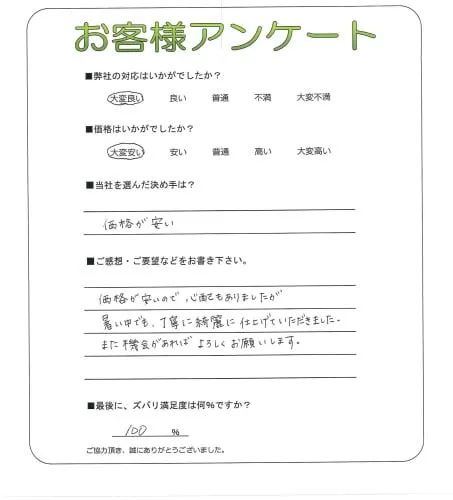 お客様アンケート
■弊社の対応はいかがでしたか?
大変良い 良い 普通 不満 大変不満
■価格はいかがでしたか?
大変安い 安い 普通 高い 大変高い
■当社を選んだ決め手は?
価格が安い
■ご感想・ご要望などをお書き下さい。
価格が安いので心配もありましたが
暑い中でも、丁寧に綺麗に仕上げていただきました。
また機会があればよろしくお願いします。
■最後に、ズバリ満足度は何%ですか?
100 %
ご協力頂き、誠にありがとうございました。